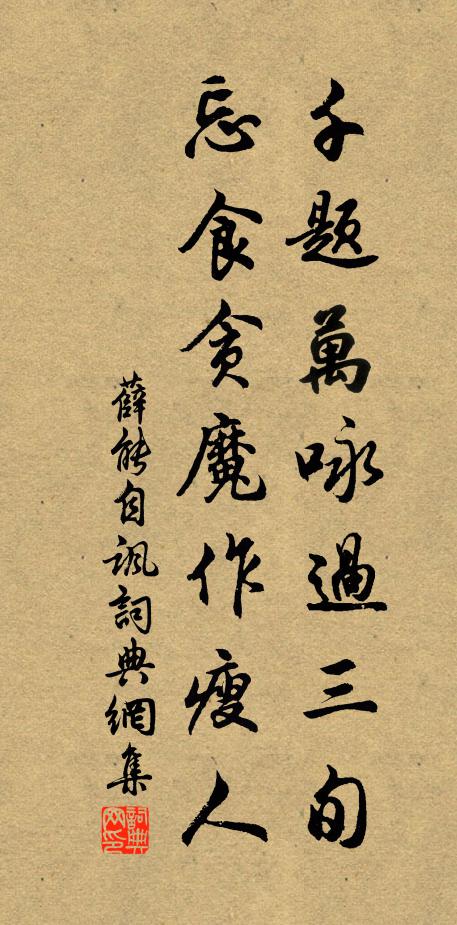 千題萬咏過三旬
忘食貪魔作瘦人
薛能自諷詞典網集
詞典網印